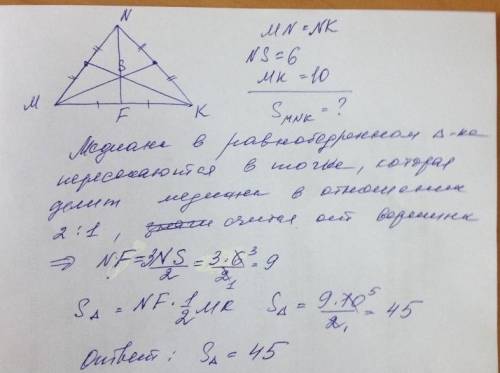 N
S
M
F
K
MN = NK
NS = 6
MK = 10
S_MNK = ?
Медианы в равнобедренном Δ-ке
пересекаются в точке, которая
делит медианы в отношении
2:1, считая от вершины
⇒ NF = 3NS/2 = 3·6/2 = 9
S_Δ = NF · 1/2 MK S_Δ = 9·10/2 = 45
Ответ: S_Δ = 45